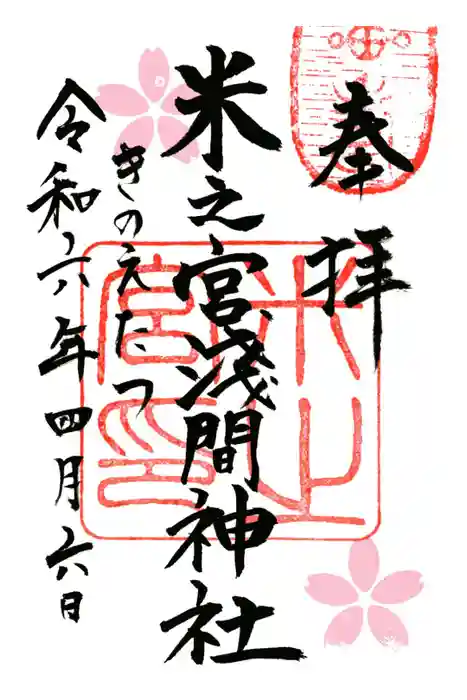 奉拝
米之宮浅間神社
きのえたつ
令和六年四月六日
米之宮印